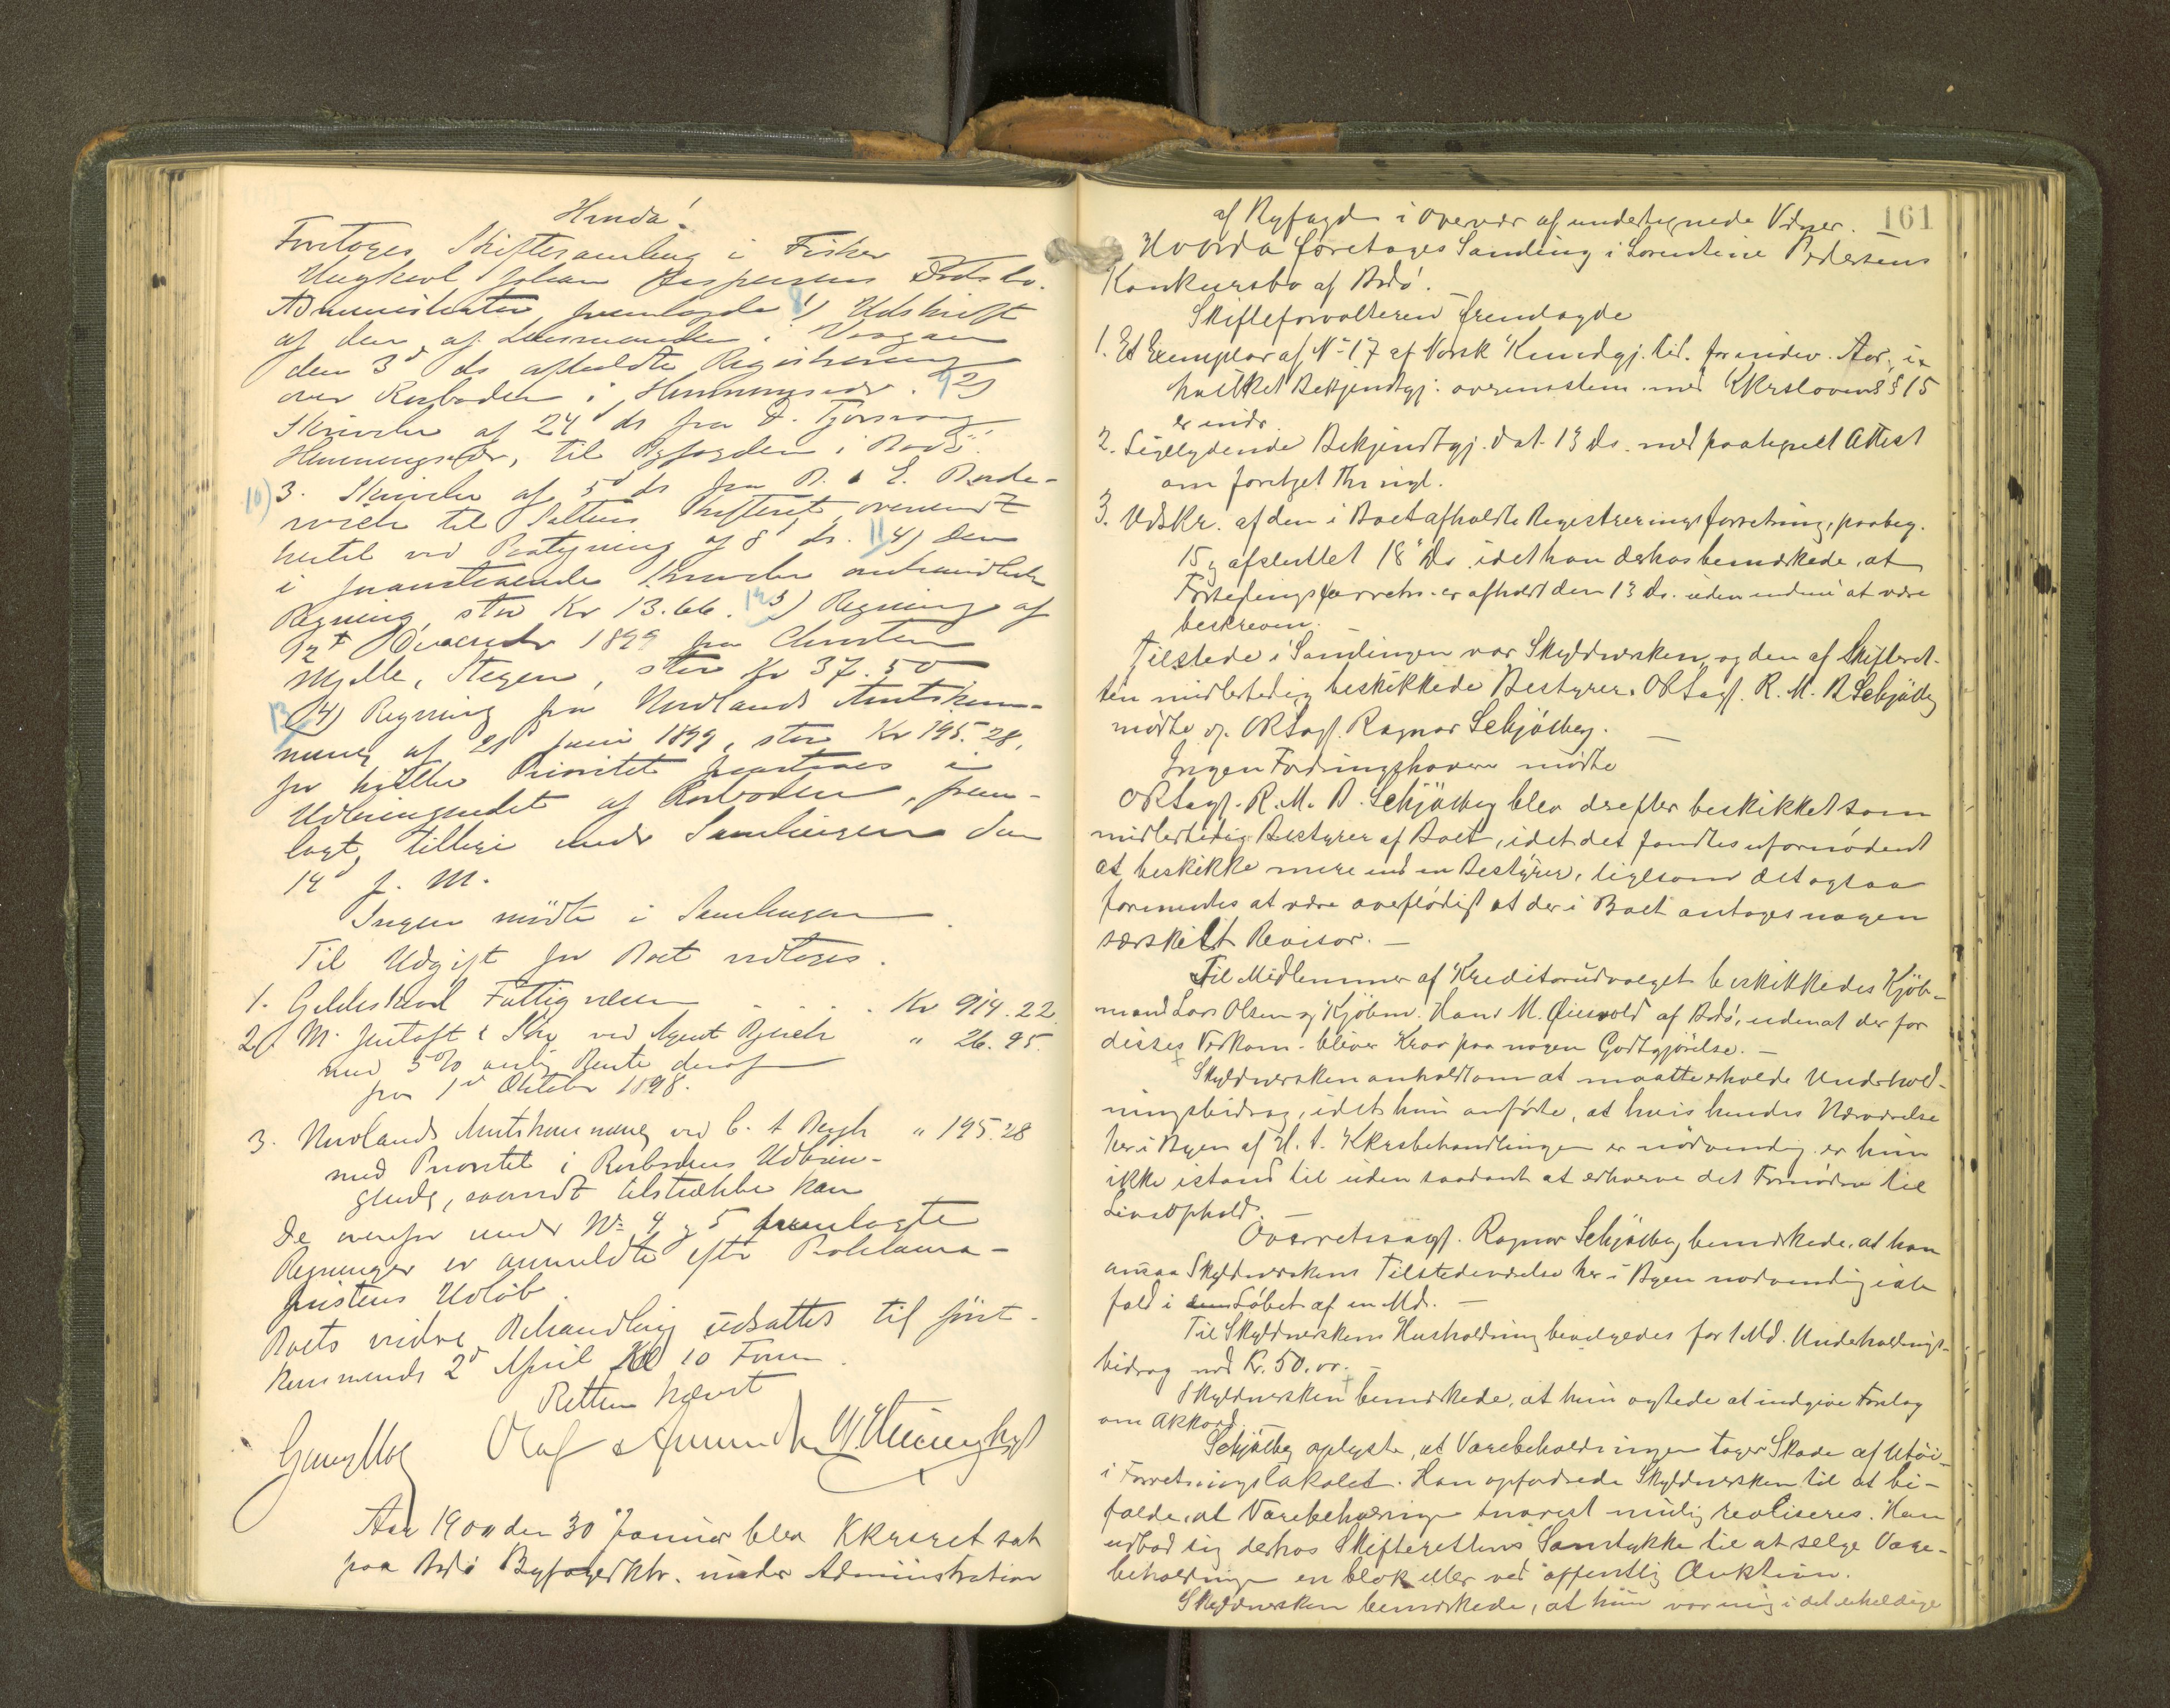 Hvorda!
Foretoges Skiftesamling i Fisker
Ungkarl Johan Jespersens Dødsbo.
Administrator fremlagde 8 1) Udskrift
af den af Lensmanden i Vaagan
den 3d ds afholdte Registrering
over Rorboden i Henningsvær. 9 2)
Skrivelse af 24d ds fra O. Tjørsvaag
Henningsvær, til Byfogden i Bodø.
10) 3. Skrivelse af 5d ds fra B. & E. Borde-
wich til Saltens Skifteret oversendt
hertil ved Paategning af 8d ds. 11 4) Den
i foranstaaende Skrivelse omhandlede
Regning, stor Kr 13.66. 12 3) Regning af
12t December 1899 fra Christen
Mølle, Stegen, stor Kr 37.50
13 4) Regning fra Nordlands Amtskom-
mune af 21d Juni 1899, stor Kr 195.28,
for hvilken Prioritet paastaaes i
Udbringendet af Rorboden, frem-
lagt tillige under Samlingen den
14d f. M.
Ingen mødte i Samlingen.
Til Udgift for Boet vedtoges.
1. Gildeskaal Fattigvæsen . . . . Kr 914.22
2. M. Jentoft & Søn ved Agent Bjerch " 26.95.
med 5% aarlig Rente deraf
fra 1d Oktober 1898.
3. Nordlands Amtskommune ved C. A Bergh " 195.28
med Prioritet i Rorbodens Udbrin-
gende, saavidt tilstrække kan
De ovenfor under No 4 og 5 fremlagte
Regninger er anmeldte efter Proklama-
fristens Udløb.
Boets videre Behandling udsattes til først-
kommende 2d April Kl 10 Form.
Retten hævet
Olaf Amundsen
Aar 1900 den 30 Januar blev Kkrsret sat
paa Bodø Byfogedktr. under Administration
161
af Byfogden i Overvær af undertegnede Vidner.
Hvorda foretoges Samling i Lorentine Pedersens
Konkursbo af Bodø.
Skifteforvalteren fremlagde
1. Et Exemplar af No 17 af Norsk Kundgj. tid. for indev. Aar, i
hvilket Bekjendtgj. overensstem. med Kkrslovens § 15
er indr.
2. Ligelydende Bekjendtgj. dat. 13 ds. med paategnet Attest
om foretaget Thingl.
3. Udskr. af den i Boet afholdte Registreringsforretning, paabeg.
15 og afsluttet 18 ds. idet han derhos bemærkede, at
Forseglingsforretn. er afholdt den 13 ds. uden endnu at være
beskreven.
Tilstede i Samlingen var Skyldnersken, og den af Skifteret-
ten midlertidig beskikkede Bestyrer, ORSagf. R. M. B. Schjølberg
mødte og. ORSagf. Ragnar Schjølberg. —
Ingen Fordringshavere mødte
ORSagf. R. M. B. Schjølberg blev derefter beskikket som
midlertidig Bestyrer af Boet, idet det fandtes ufornødent
at beskikke mere end en Bestyrer, ligesom det ogsaa
formentes at være overflødigt at der i Boet antoges nogen
særskilt Revisor. —
Til Medlemmer af Kreditorudvalget beskikkedes Kjøb-
mand Lars Olsen og Kjøbm. Hans M. Øiesvold af Bodø, uden at der for
disses Vedkom. bliver Krav paa nogen Godtgjørelse. —
Skyldnersken anholdt om at maatte erholde Underhold-
ningsbidrag, idet hun anførte, at hvis hendes Nærværelse
her i Byen af H. t. Kkrsbehandlingen er nødvendig er hun
ikke istand til uden saadant at erhverve det Fornødne til
Livsophold. —
Overretssagf. Ragnar Schjølberg bemærkede, at han
ansaa Skyldnerskens Tilstedeværelse her i Byen nødvendig ialt
fald i Løbet af en Md. —
Til Skyldnerskens Husholdning bevilgedes for 1 Md. Underholdnings-
bidrag med Kr. 50.00. —
Skyldnersken bemærkede, at hun agtede at indgive Forslag
om Akkord.
Schjølberg oplyste, at Varebeholdningen tager Skade af Utøi
i Forretningslokalet. Han opfordrede Skyldnersken til at bi-
falde, at Varebeholdningen snarest mulig realiseres. Han
udbad sig derhos Skifterettens Samtykke til at selge Vare-
beholdningen en blok eller ved offentlig Auktion.
Skyldnersken bemærkede, at hun var enig i det uheldige